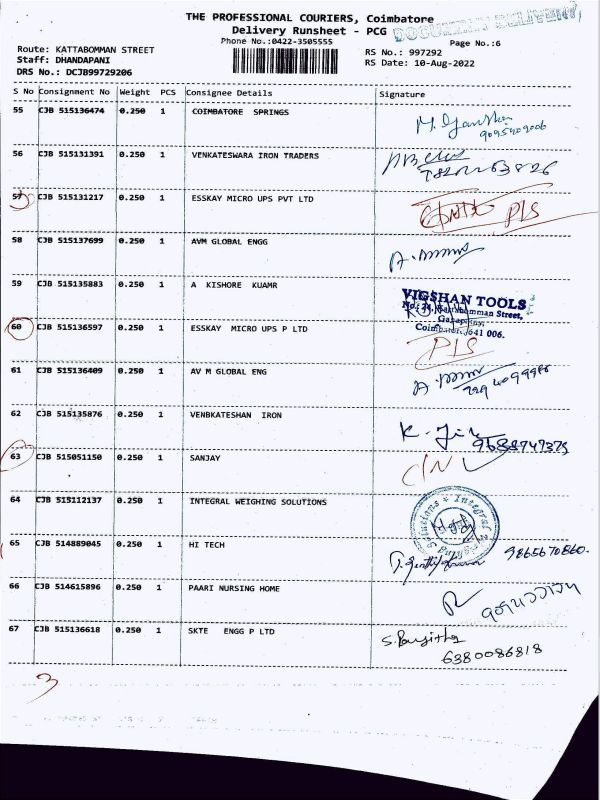 THE PROFESSIONAL COURIERS, Coimbatore
Delivery Runsheet - PCG
DOCUMENT DELIVERY
Phone No.:0422-3505555
Page No.:6
Route: KATTABOMMAN STREET
RS No.: 997292
Staff: DHANDAPANI
RS Date: 10-Aug-2022
DRS No.: DCJB99729206
S No Consignment No Weight PCS Consignee Details Signature
55 CJB 515136474 0.250 1 COIMBATORE SPRINGS
56 CJB 515131391 0.250 1 VENKATESWARA IRON TRADERS
57 CJB 515131217 0.250 1 ESSKAY MICRO UPS PVT LTD P/S
58 CJB 515137699 0.250 1 AVM GLOBAL ENGG
59 CJB 515135883 0.250 1 A KISHORE KUAMR
VIGSHAN TOOLS
Street,
641 006.
60 CJB 515136597 0.250 1 ESSKAY MICRO UPS P LTD
P/S
61 CJB 515136409 0.250 1 AV M GLOBAL ENG
62 CJB 515135876 0.250 1 VENBKATESHAN IRON
63 CJB 515051150 0.250 1 SANJAY
64 CJB 515112137 0.250 1 INTEGRAL WEIGHING SOLUTIONS
65 CJB 514889045 0.250 1 HI TECH 9865670860.
66 CJB 514615896 0.250 1 PAARI NURSING HOME
67 CJB 515136618 0.250 1 SKTE ENGG P LTD
6380086818
3